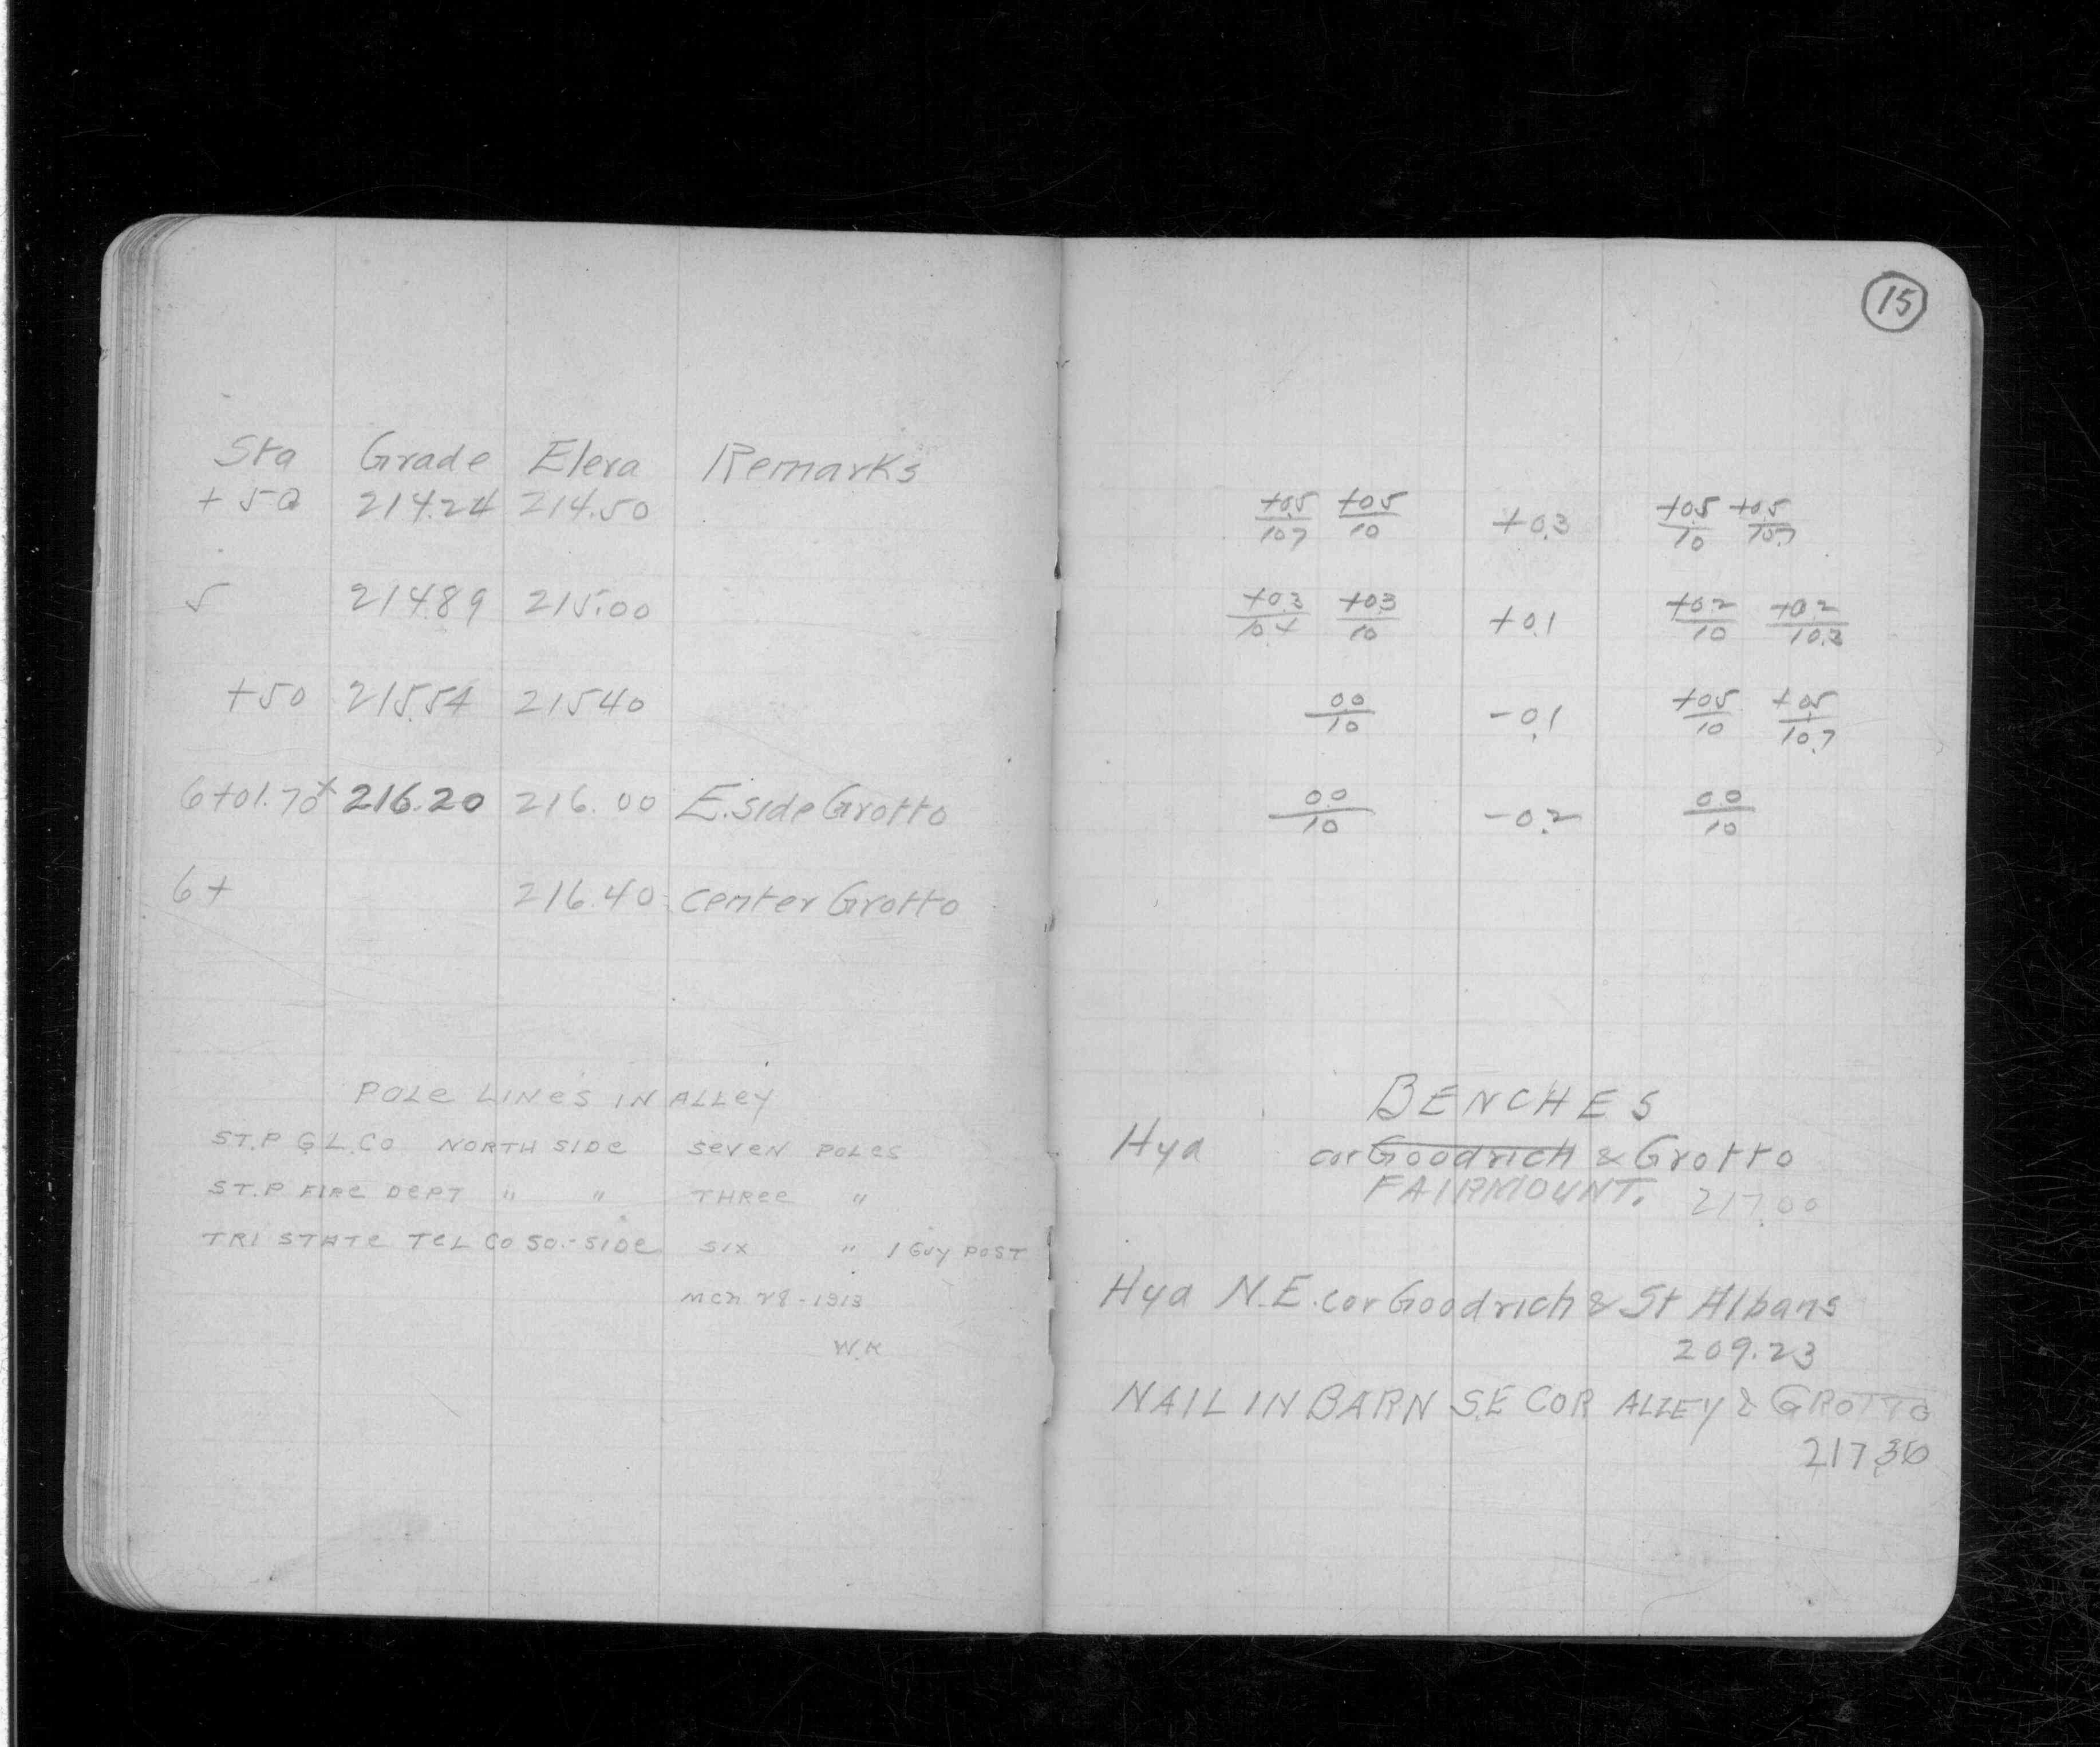 Sta Grade Eleva Remarks
+50 214.24 214.50
5 214.89 215.00
+50 215.54 215.40
6+01.70x 216.20 216.00 E. side Grotto
6+ 216.40 center Grotto
POLE LINES IN ALLEY
ST. P G. L. CO NORTH SIDE SEVEN POLES
ST. P FIRE DEPT " " THREE "
TRI STATE TEL CO SO.-SIDE SIX " 1 GUY POST
MCH 28-1913
W.K
15
+0.5/10.7 +0.5/10 +0.3 +0.5/10 +0.5/10.7
+0.3/10.4 +0.3/10 +0.1 +0.2/10 +0.2/10.3
0.0/10 -0.1 +0.5/10 +0.5/10.7
0.0/10 -0.2 0.0/10
BENCHES
Hyd cor Goodrich & Grotto
FAIRMOUNT. 217.00
Hyd N.E. cor Goodrich & St Albans
209.23
NAIL IN BARN S.E COR ALLEY & GROTTO
217.30